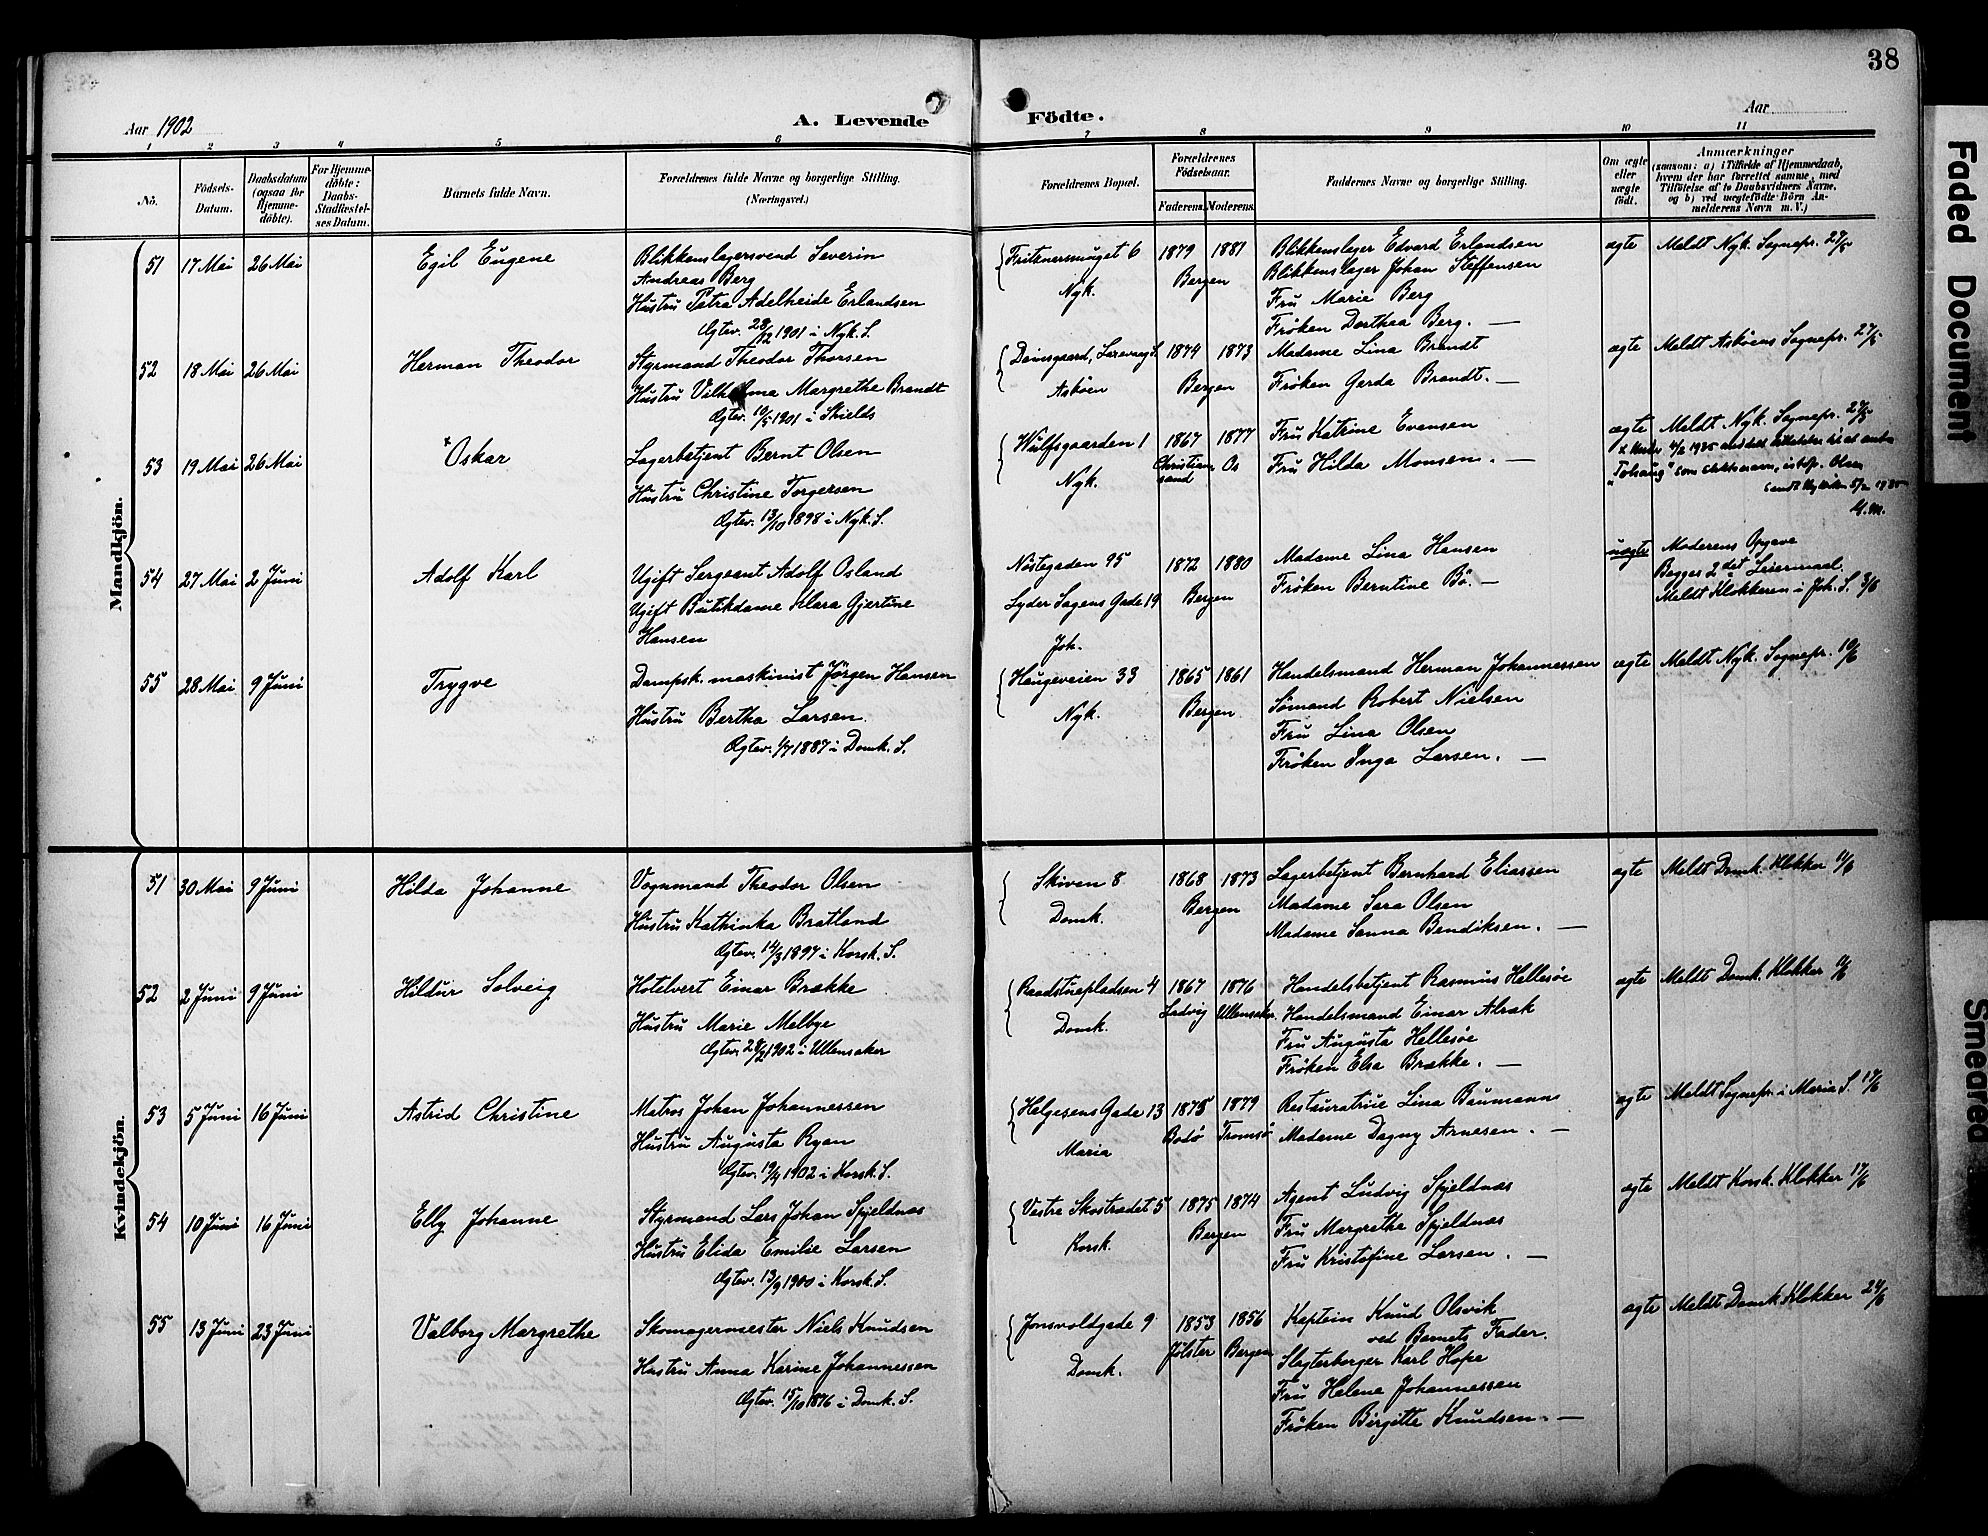 38
Aar 1902
A. Levende
Födte.
Aar
1 2 3 4 5 6 7 8 9 10 11
No.
Födsels-
Datum.
Daabsdatum
(ogsaa for
Hjemme-
döbte).
For Hjemme-
döbte:
Daabs-
Stadfæstel-
ses Datum.
Barnets fulde Navn.
Forældrenes fulde Navne og borgerlige Stilling.
(Næringsvei.)
Forældrenes Bopæl.
Forældrenes
Födselsaar.
Faderens. Moderens.
Faddernes Navne og borgerlige Stilling.
Om ægte
eller
uægte
födt.
Anmærkninger
(saasom: a) i Tilfælde af Hjemmedaab,
hvem der har forrettet samme, med
Tilföielse af to Daabsvidners Navne,
og b) ved uægtefödte Börn An-
melderens Navn m. V.)
Mandkjön.
51 17 Mai 26 Mai Egil Eugene
Blikkenslagersvend Severin
Andreas Berg
Hustru Petra Adelheide Erlandsen
Ægtev. 28/12 1901 i Nyk. S.
Fritznersmuget 6
Nyk.
1879 1881
Bergen
Blikkenslager Edvard Erlandsen
Blikkenslager Johan Steffensen
Fru Marie Berg
Fröken Dorthea Berg. —
ægte
Meldt Nyk. Sognepr. 27/5
52 18 Mai 26 Mai Herman Theodor
Styrmand Theodor Thorsen
Hustru Vilhelmine Margrethe Brandt
Ægtev. 10/5 1901 i Shields
Damsgaard, Laxevaag S.
Askøen
1874 1873
Bergen
Madame Lina Brandt
Fröken Gerda Brandt. —
ægte
Meldt Askøens Sognepr. 27/5
53 19 Mai 26 Mai × Oskar
Lagerbetjent Bernt Olsen
Hustru Christine Torgersen
Ægtev. 13/10 1898 i Nyk. S.
Wulfsgaarden 1
Nyk.
1867 1877
Christiansand Os
Fru Katrine Evensen
Fru Hilda Monsen. —
ægte
Meldt Nyk. Sognepr. 27/5
som slektsnavn, istdf. Olsen
54 27 Mai 2 Juni Adolf Karl
Ugift Sergeant Adolf Osland
Ugift Butikdame Klara Gjertine
Hansen
Nöstegaden 95
Lyder Sagens Gade 19
Joh.
1872 1880
Bergen
Madame Lina Hansen
Fröken Berntine Bö. —
uægte
Moderens Opgave
Begges 2det Leiermaal.
Meldt Klokkeren i Joh. S. 3/6
55 28 Mai 9 Juni Trygve
Dampsk. maskinist Jörgen Hansen
Hustru Bertha Larsen.
Ægtev. 1/7 1887 i Domk. S.
Haugeveien 33
Nyk.
1865 1861
Bergen
Handelsmand Herman Johannessen
Sömand Robert Nielsen
Fru Lina Olsen
Fröken Inga Larsen. —
ægte
Meldt Nyk. Sognepr. 10/6
Kvindekjön.
51 30 Mai 9 Juni Hilda Johanne
Vognmand Theodor Olsen
Hustru Kathinka Bratland
Ægtev. 14/3 1897 i Korsk. S.
Skiven 8
Domk.
1868 1873
Bergen
Lagerbetjent Bernhard Eliassen
Madame Sara Olsen
Madame Sanna Bendiksen. —
ægte
Meldt Domk. Klokker 11/6
52 2 Juni 9 Juni Hildur Solveig
Hotelvert Einar Brække
Hustru Marie Melbye
Ægtev. 28/2 1902 i Ullensaker
Raadstuepladsen 4
Domk.
1867 1876
Ladvig Ullensaker.
Handelsbetjent Rasmus Hellesøe
Handelsmand Einar Alrak
Fru Augusta Hellesøe
Fröken Elsa Brække. —
ægte
Meldt Domk. Klokker 11/6
53 5 Juni 16 Juni Astrid Christine
Matros Johan Johannessen
Hustru Augusta Ryan
Ægtev. 19/4 1902 i Korsk. S.
Helgesens Gade 13
Maria
1875 1879
Bodø Tromsø
Restauratrice Lina Baumann
Madame Dagny Arnesen. —
ægte
Meldt Sognepr. i Maria S. 17/6
54 10 Juni 16 Juni Elly Johanne
Styrmand Lars Johan Spjeldnæs
Hustru Elida Emilie Larsen
Ægtev. 13/9 1900 i Korsk. S.
Vestre Skostrædet 5
Korsk.
1875 1874
Bergen
Agent Ludvig Spjeldnæs
Fru Margrethe Spjeldnæs
Fru Kristofine Larsen. —
ægte
Meldt Korsk. Klokker 17/6
55 13 Juni 23 Juni Valborg Margrethe
Skomagermester Niels Knudsen
Hustru Anna Karine Johannessen
Ægtev. 15/10 1876 i Domk. S.
Jonsvoldgade 9
Domk.
1853 1856
Jølster Bergen
Kaptein Knud Olsvik
ved Barnets Fader.
Slagterborger Karl Hope
Fru Helene Johannessen
Fröken Birgitte Knudsen. —
ægte
Meldt Domk. Klokker 24/6
Faded Document
Smeared